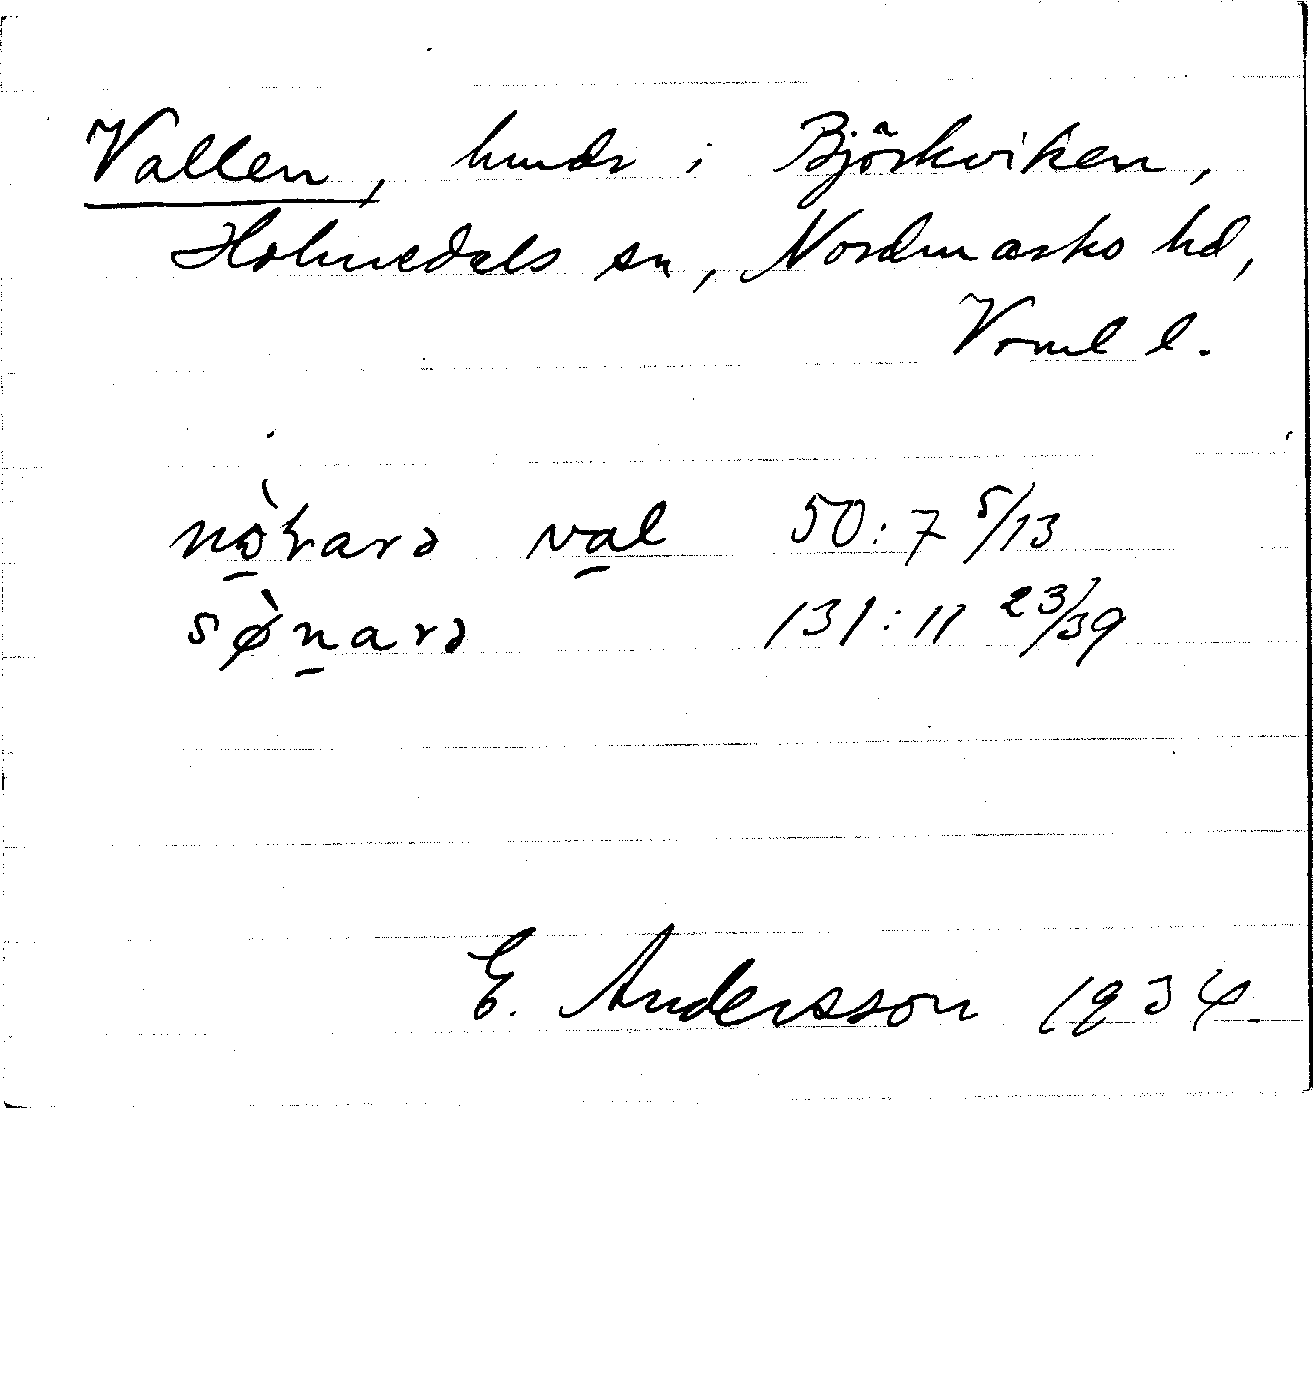 Vallen, hmdr i Björkviken,
Holmedals sn, Nordmarks hd,
Vrml l.
nòk̄arə val 50:7 5/13
sø̀narə 131:11 23/39
E. Andersson 1934